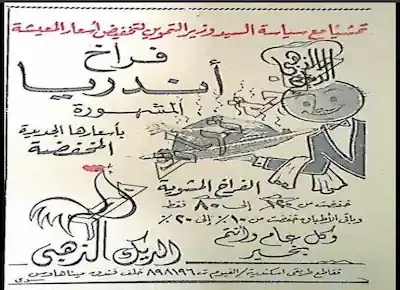 تمشيًا مع سياسة السيد وزير التموين لتخفيض أسعار المعيشة
فراخ
أندريا
المشهورة
بأسعارها الجديدة
المخفضة
الديك الذهبى
الفراخ المشوية
خفضت من إلى ٨٠ فقط
وباقى الأطباق خفضت من ١٠٪ إلى ٢٠٪
وكل عام وأنتم
بخير
الديك الذهبى
تقاطع طريقى اسكندرية/الفيوم ت ٨٩٨١٩٦ خلف فندق ميناهاوس